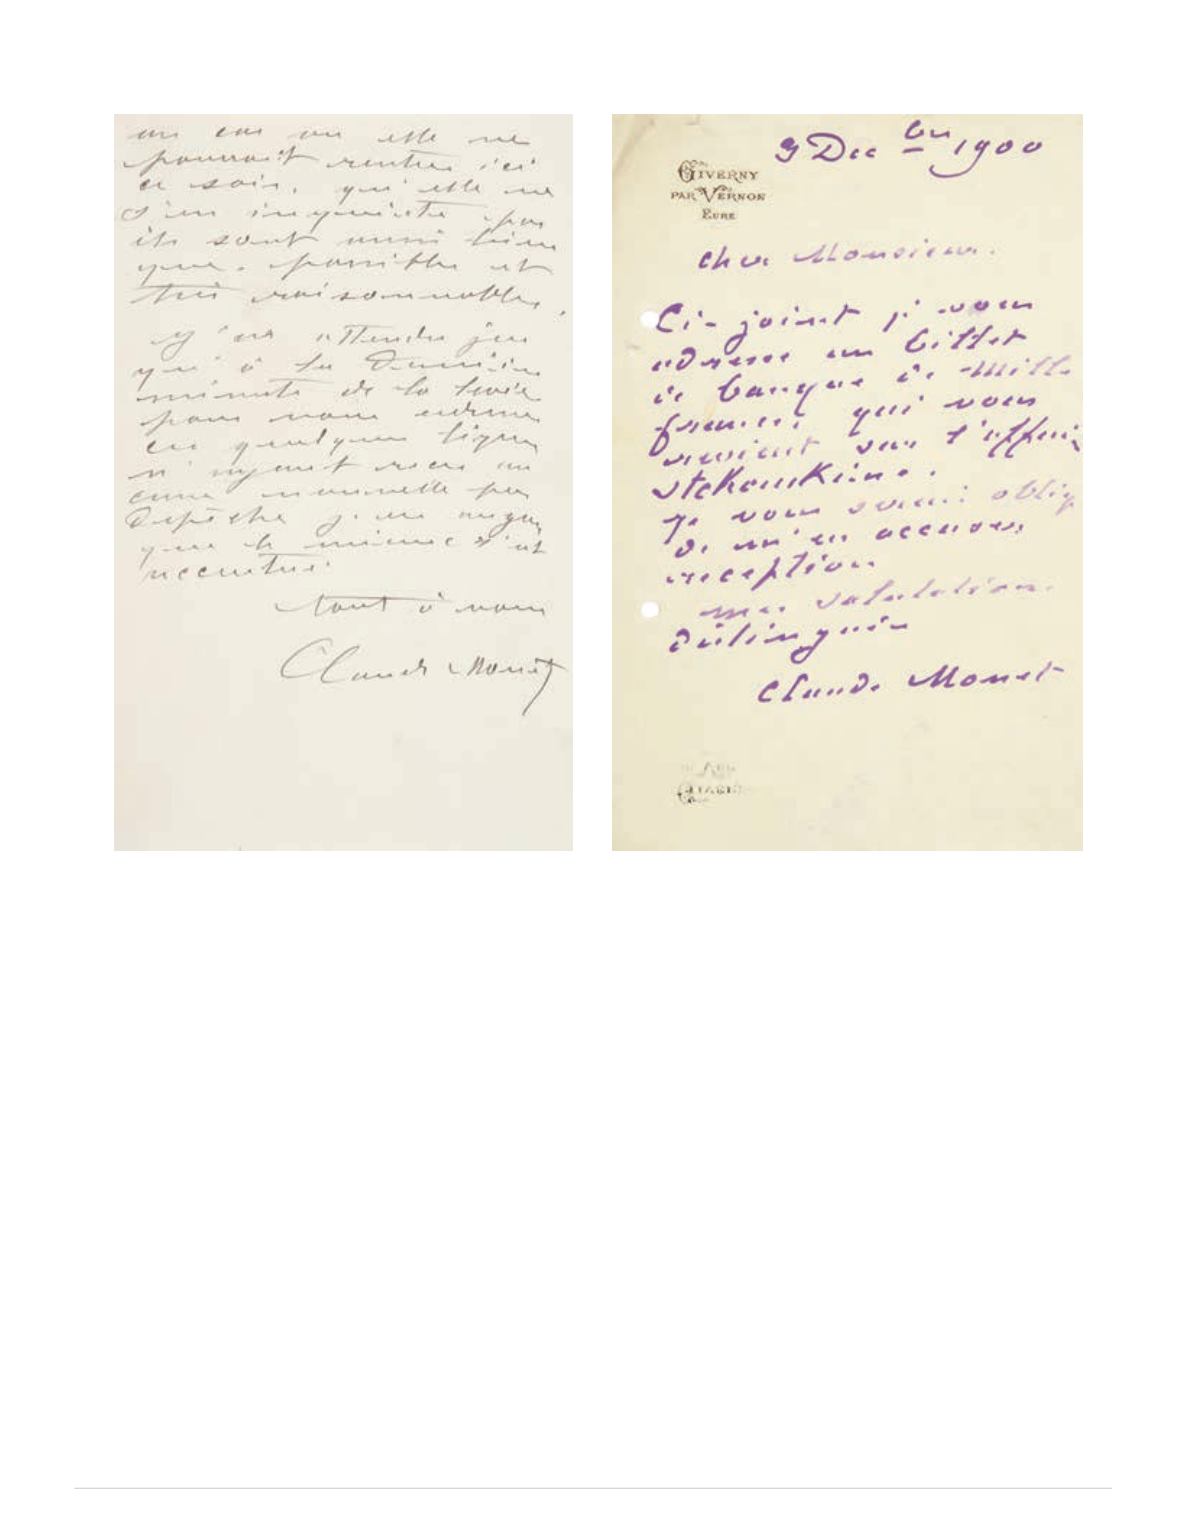 au cas ou elle ne
pouvait rentrer ici
ce soir, qu'elle ne
s'en inquiète pas
ils sont aussi bien
que possible et
très raisonnables.
J'ai attendu jus
qu'à la dernière
minute de la levée
pour vous adresser
ces quelques lignes
n'ayant reçu au
cune nouvelle par
dépêche
que le mieux s'est
accentué.
tout à vous
Claude Monet
9 Dec bre 1900
GIVERNY
PAR VERNON
EURE
cher Monsieur.
Ci-joint je vous
adresse un billet
de banque de mille
francs, qui vous
revient sur l'affaire
Stchoukine.
Je vous serai oblig
de m'en accuser
reception.
mes salutations
distinguées
Claude Monet